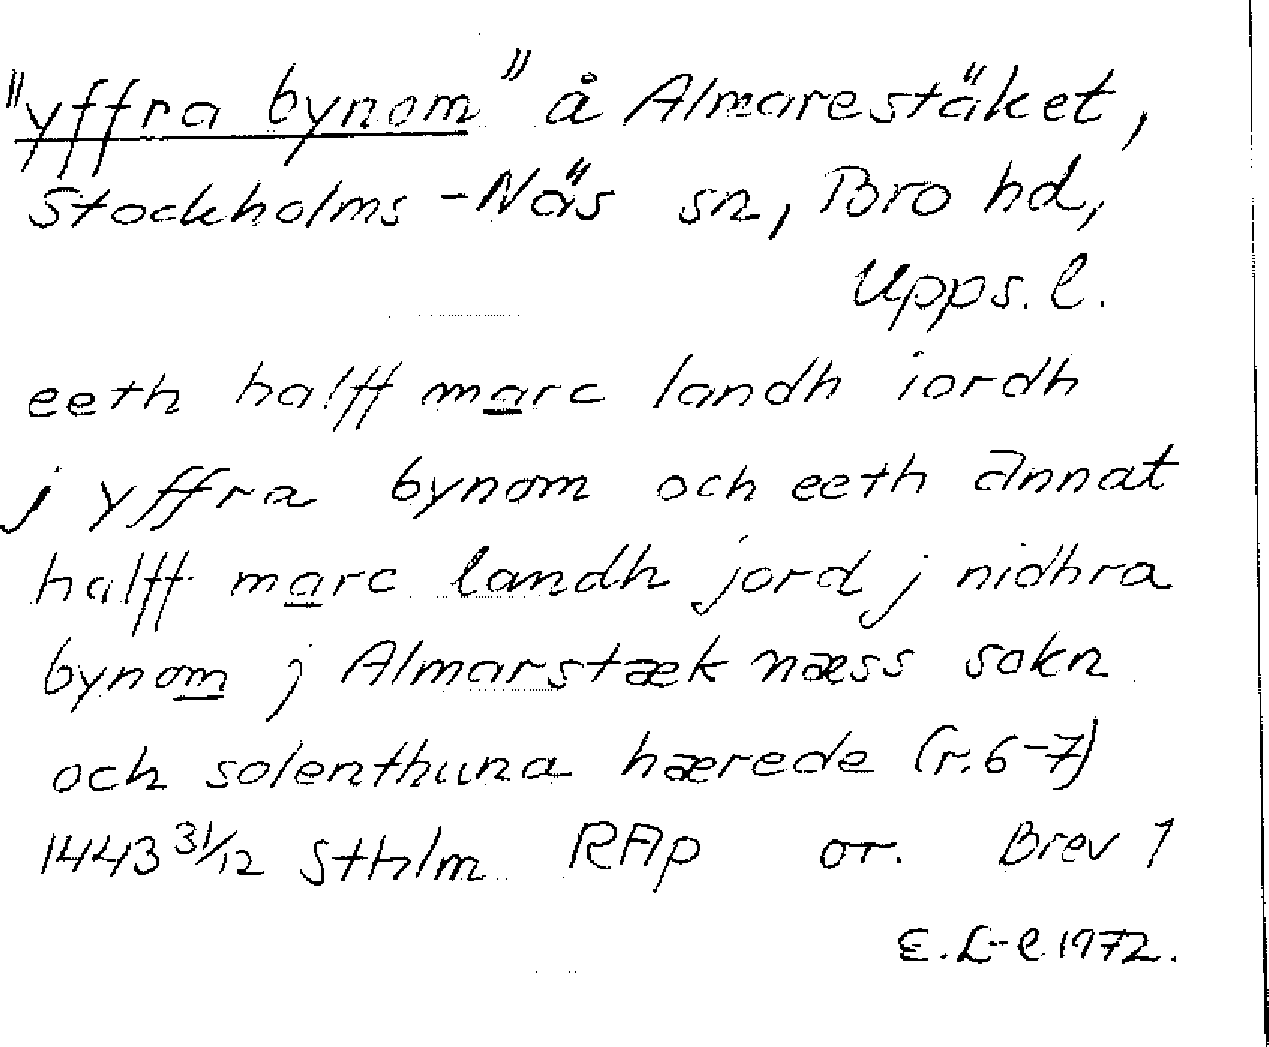 "yffra bynom" å Almarestäket,
Stockholms-Näs sn, Bro hd,
Upps. l.
eeth halff marc landh iordh
j yffra bynom och eeth annat
halff marc landh jord j nidhra
bynom j Almarstæk næss sokn
och solenthuna hærede (r. 6-7)
1443 31/12 Sthlm RAp or. Brev 1
E. L-e 1972.